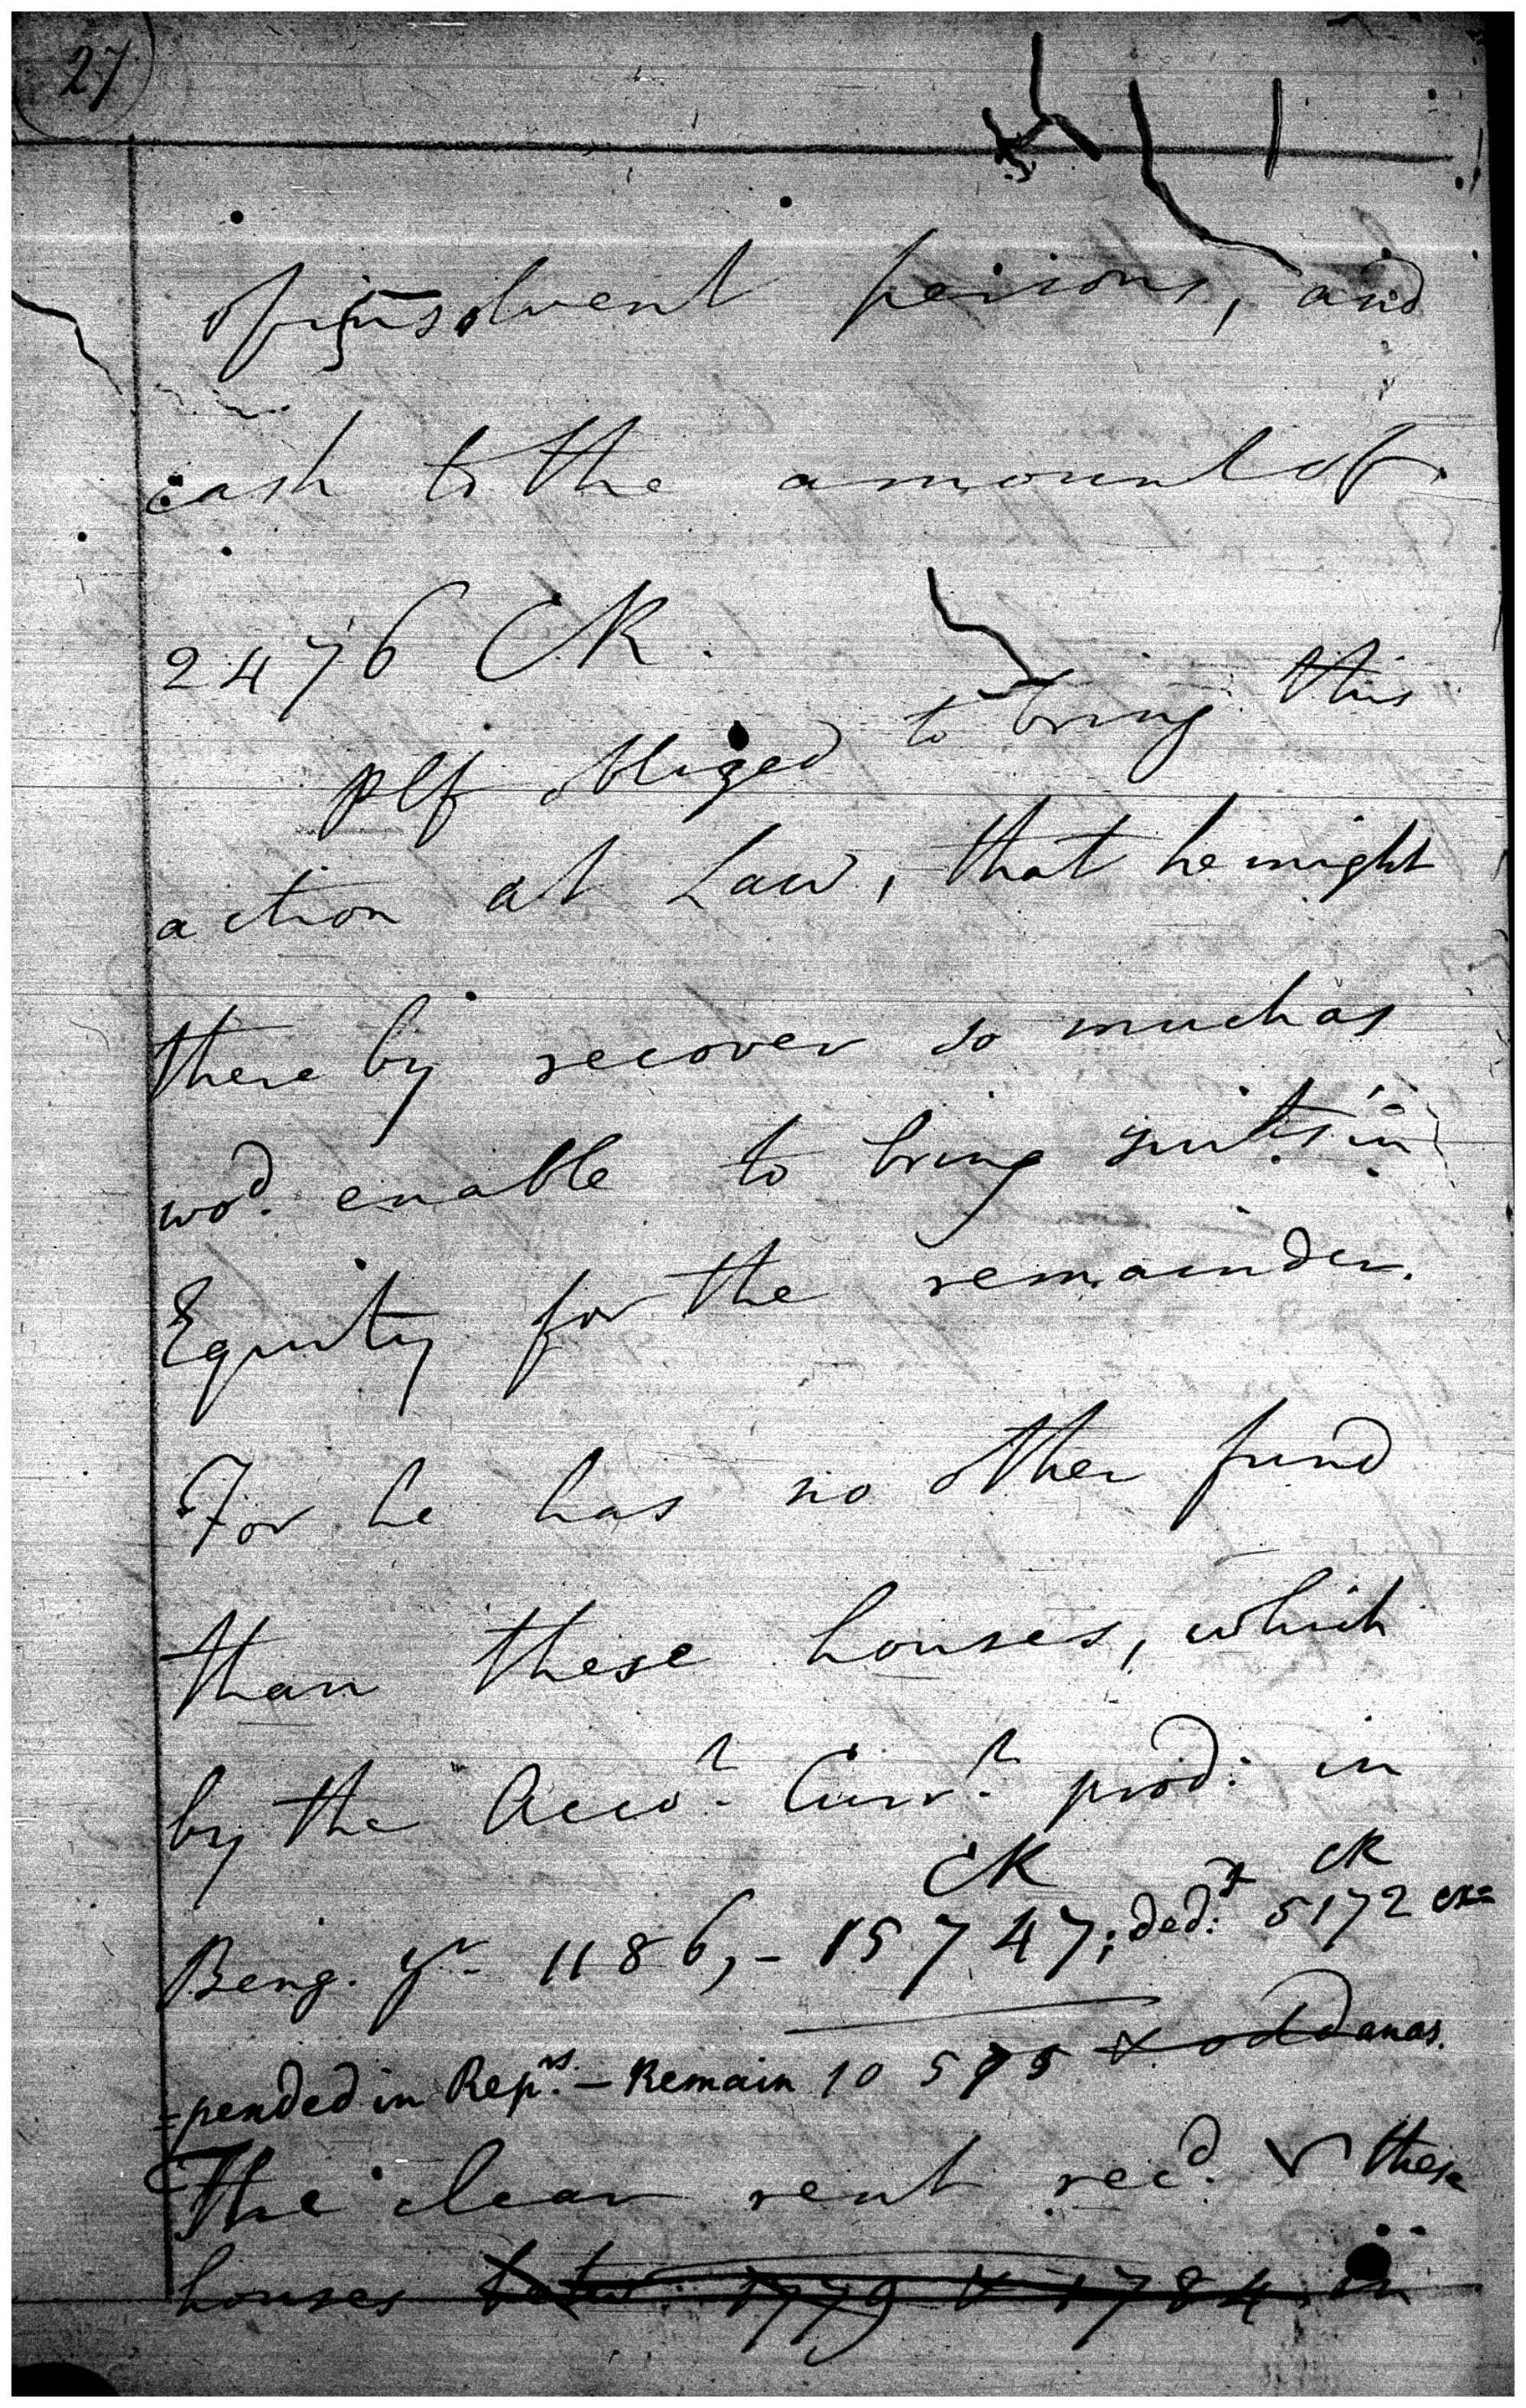 27
of insolvent persons, and
cash to the amount of
2476 CR.
plf obliged to bring this
action at Law, that he might
there by recover so much as
wod. enable to bring suits in
Equity for the remainder.
For he has no other fund
than these houses, which
by the Acco.t Curr.t prod: in
CR CR
Beng. yr. 1186, - 15747; ded: 5172 ex=
=pended in Reprs. - Remain 10 575 & odd anas.
The clear rent recd. these
houses betw. 1779 & 1784 in